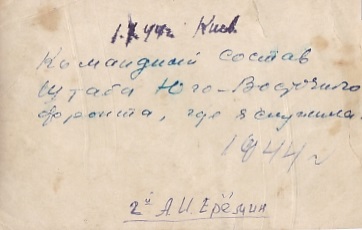 1.V 44г Киев
Командный состав
Штаба Юго-Восточного
фронта, где я служила.
1944 г
2й А.И. Ерёмин